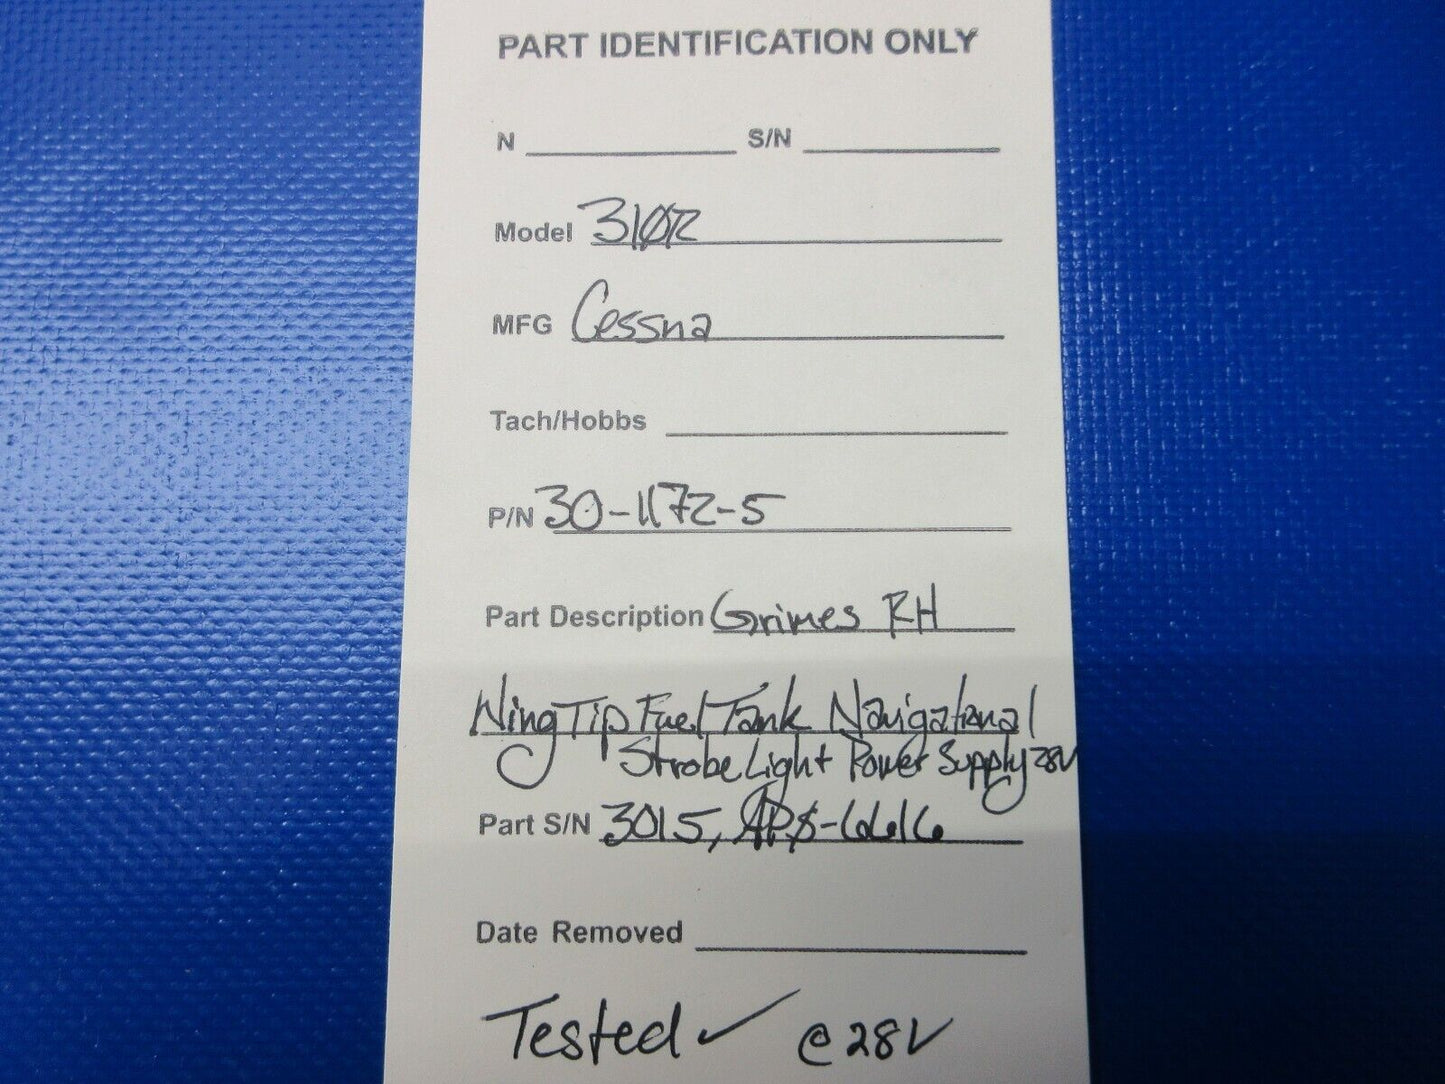 PART IDENTIFICATION ONLY
N S/N
Model 310R
MFG Cessna
Tach/Hobbs
P/N 30-1172-5
Part Description Grimes RH
Wing Tip Fuel Tank Navigational
Strobe Light Power Supply 28V
Part S/N 3015,
Date Removed
Tested ✓ @ 28V